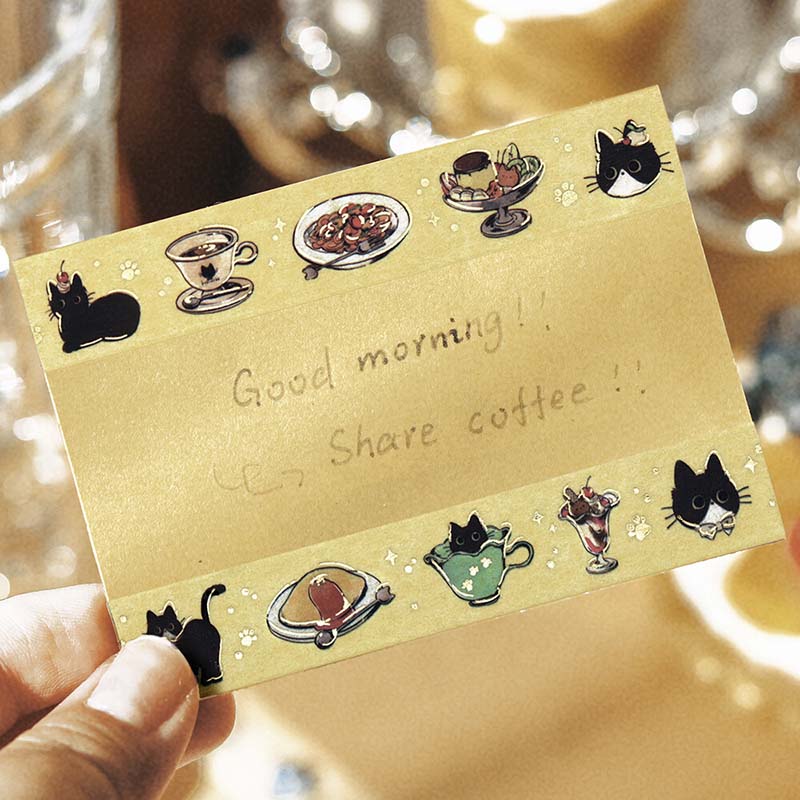 Good morning!!
Share coffee!!